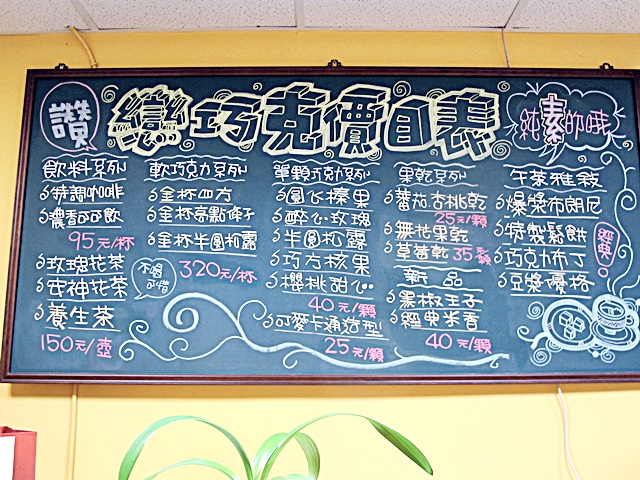 讚
戀巧克價目表
純素的哦
飲料系列
特調咖啡
濃香可可飲
95元/杯
玫瑰花茶
安神花茶
養生茶
150元/壺
軟巧克力系列
金杯四方
金杯亮點條子
金杯半圓柏露
320元/杯
不喝可惜
單顆巧克力系列
圓心榛果
醉心玫瑰
半圓柏露
巧方核果
櫻桃甜心
40元/顆
可麥卡通造型
25元/顆
果乾系列
蕃茄杏桃乾
25元/顆
無花果乾
草莓乾 35元/顆
新品
黑椒王子
經典米香
40元/顆
午茶雅敘
爆漿布朗尼
特製鬆餅
巧克力布丁
豆漿優格
經典